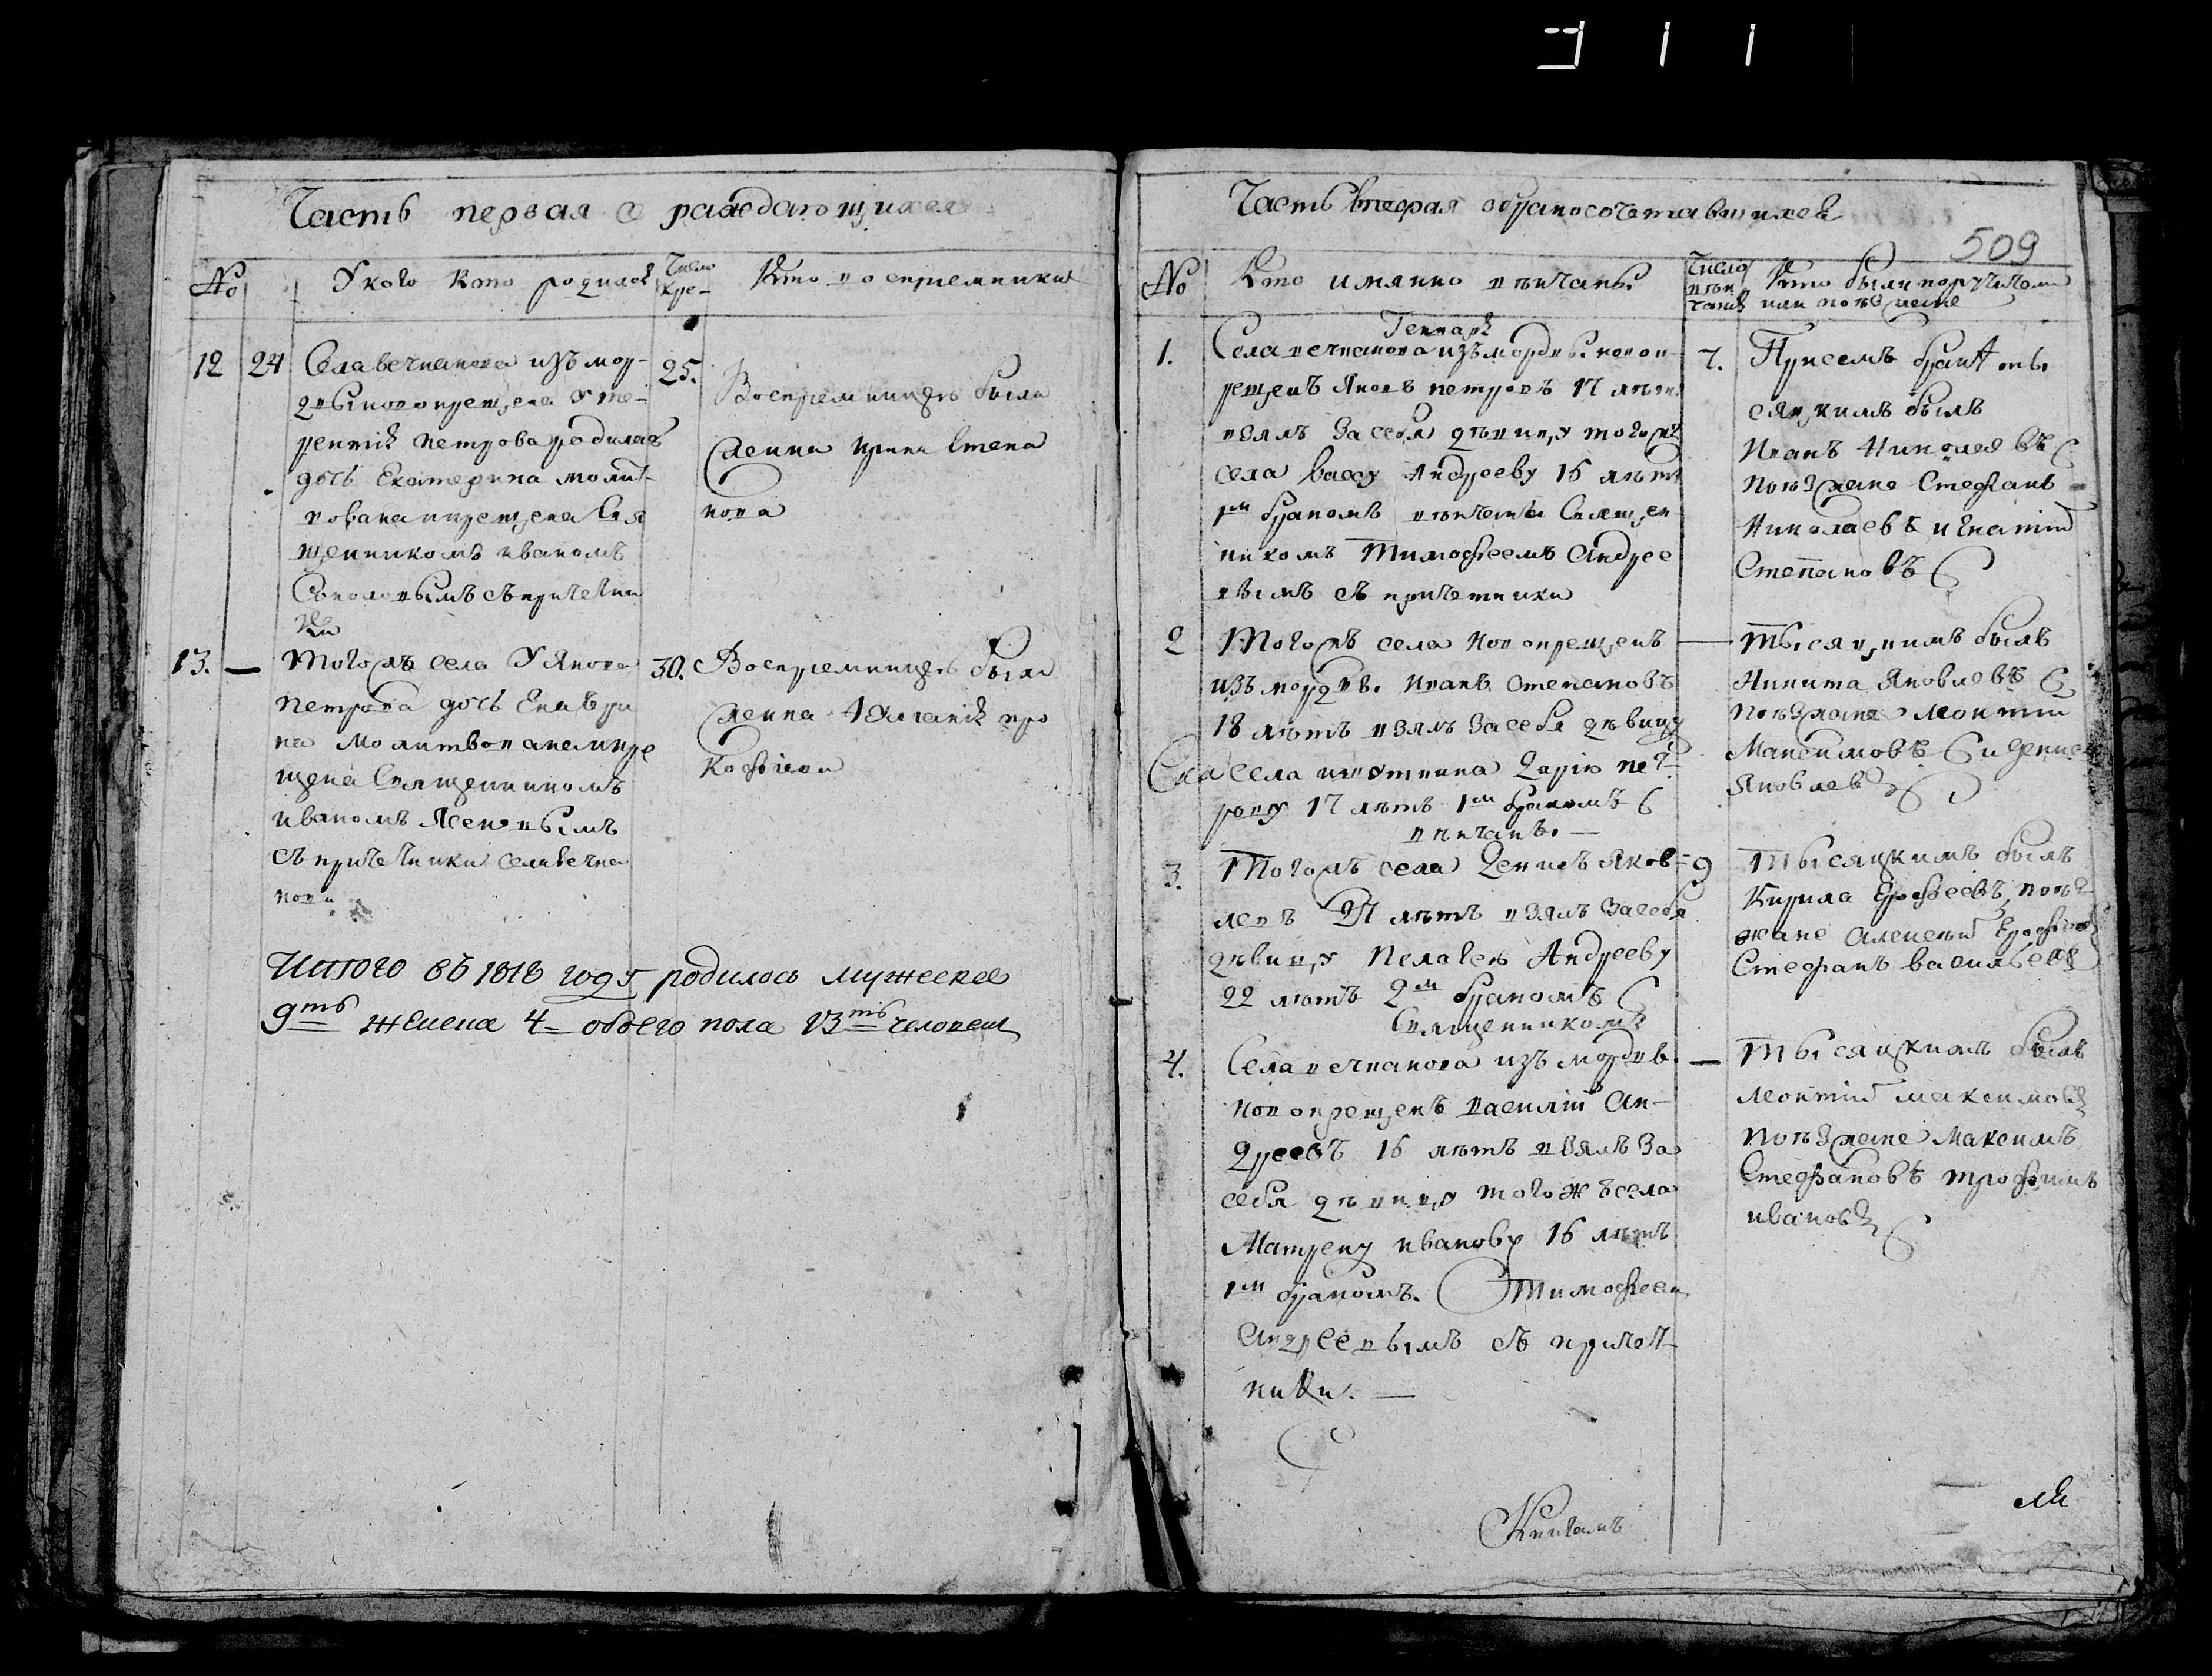 Часть первая о раждающихся
№ У кого кто родился Число кре- Кто восприемники
12 24 Села вечканова изъ мор-
двы новокрещена у те-
рентія петрова родилась
дочь Екатерина молит-
вована и крещена Свя
щенникомъ иваномъ
съ причетни
ки
25. Восприемницею была
Ирина Степа
нова
13. — Тогожъ села У Якова
петрова дочь Екатери
на молитвована и кре
щена Священникомъ
иваномъ
съ причетники села вечка
нова
30. Восприемницею была
про
кофьева
Итого въ 1818 году родилось мужеска
9ть женска 4 обоего пола 13ть человекъ
Часть вторая о бракосочетавшихся
509
№ Кто имянно венчаны Число венчанія Кто были поручители
или поезжане
Генварь
1. Села вечканова изъ мордвы новок-
рещенъ Яковъ петровъ 17 летъ
взялъ за себя девицу тогожъ
села Вассу Андрееву 16 летъ
1м бракомъ венчаны Священ
никомъ Тимофеемъ Андрее
вымъ съ причетники
7. При семъ браке ты
сяцкимъ былъ
Иванъ Николаевъ
поезжане Стефанъ
Николаевъ и Игнатій
Степановъ
2 Тогожъ села новокрещенъ
изъ мордвы Иванъ Степановъ
18 летъ взялъ за себя девицу
села Дарію пет-
рову 17 летъ 1м бракомъ
венчанъ. —
— Тысяцкимъ былъ
Никита Яковлевъ
поезжане Леонтій
Максимовъ и Денисъ
Яковлевъ
3. Тогожъ села Денисъ Яков-
левъ летъ взялъ за себя
девицу Пелагею Андрееву
22 летъ 2м бракомъ
Священникомъ
9 Тысяцкимъ былъ
Кирила Ерофеевъ, поез-
жане Алексей Ерофеевъ
Стефанъ Васильевъ
4. Села вечканова изъ мордвы
новокрещенъ василій Ан-
дреевъ 16 летъ взялъ за
себя девицу тогожъ села
Матрену иванову 16 летъ
1м бракомъ. Тимофеемъ
Андреевымъ съ причет-
ники. —
— Тысяцкимъ былъ
Леонтій Максимовъ
поезжане Максимъ
Стефановъ трофимъ
ивановъ